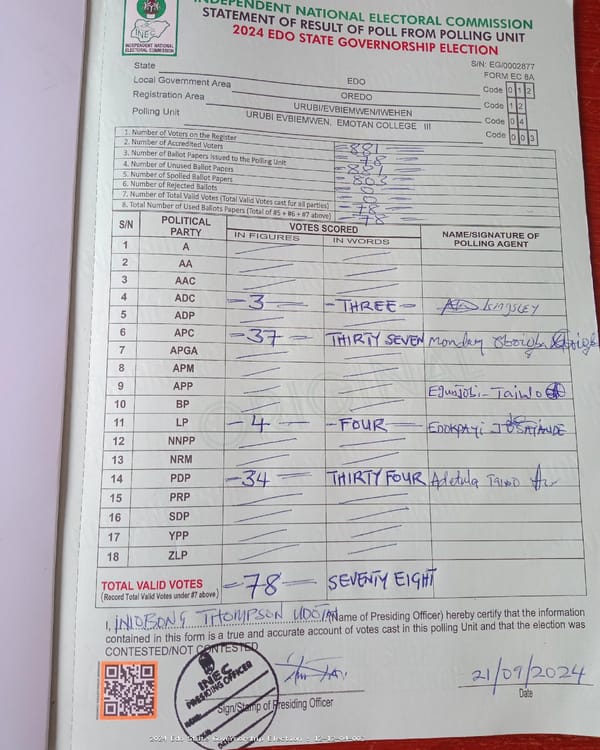 INDEPENDENT NATIONAL ELECTORAL COMMISSION
STATEMENT OF RESULT OF POLL FROM POLLING UNIT
2024 EDO STATE GOVERNORSHIP ELECTION
INEC
INDEPENDENT NATIONAL ELECTORAL COMMISSION
S/N: EG/0002877
FORM EC 8A
State EDO Code 0 1 2
Local Government Area OREDO Code 1 2
Registration Area URUBI/EVBIEMWEN/IWEHEN Code 0 4
Polling Unit URUBI EVBIEMWEN, EMOTAN COLLEGE III Code 0 0 3
1. Number of Voters on the Register 881
2. Number of Accredited Voters 78
3. Number of Ballot Papers Issued to the Polling Unit 881
4. Number of Unused Ballot Papers 803
5. Number of Spoiled Ballot Papers 0
6. Number of Rejected Ballots 0
7. Number of Total Valid Votes (Total Valid Votes cast for all parties) 78
8. Total Number of Used Ballots Papers (Total of #5 + #6 + #7 above) 78
S/N POLITICAL PARTY VOTES SCORED NAME/SIGNATURE OF POLLING AGENT
IN FIGURES IN WORDS
1 A
2 AA
3 AAC
4 ADC -3- -THREE- KINGSLEY
5 ADP
6 APC -37- THIRTY SEVEN Monday
7 APGA
8 APM
9 APP Egunjobi- Taiwo
10 BP
11 LP -4- -FOUR- EDOKPAYI
12 NNPP
13 NRM
14 PDP -34- THIRTY FOUR Adetula Taiwo
15 PRP
16 SDP
17 YPP
18 ZLP
TOTAL VALID VOTES -78- SEVENTY EIGHT
(Record Total Valid Votes under #7 above)
I, INIOBONG THOMPSON UDOTAN (Name of Presiding Officer) hereby certify that the information
contained in this form is a true and accurate account of votes cast in this polling Unit and that the election was
CONTESTED/NOT CONTESTED
INEC
PRESIDING OFFICER
21/09/2024
Sign/Stamp of Presiding Officer Date
2024 Edo State Governorship Election - 12-12-04-003